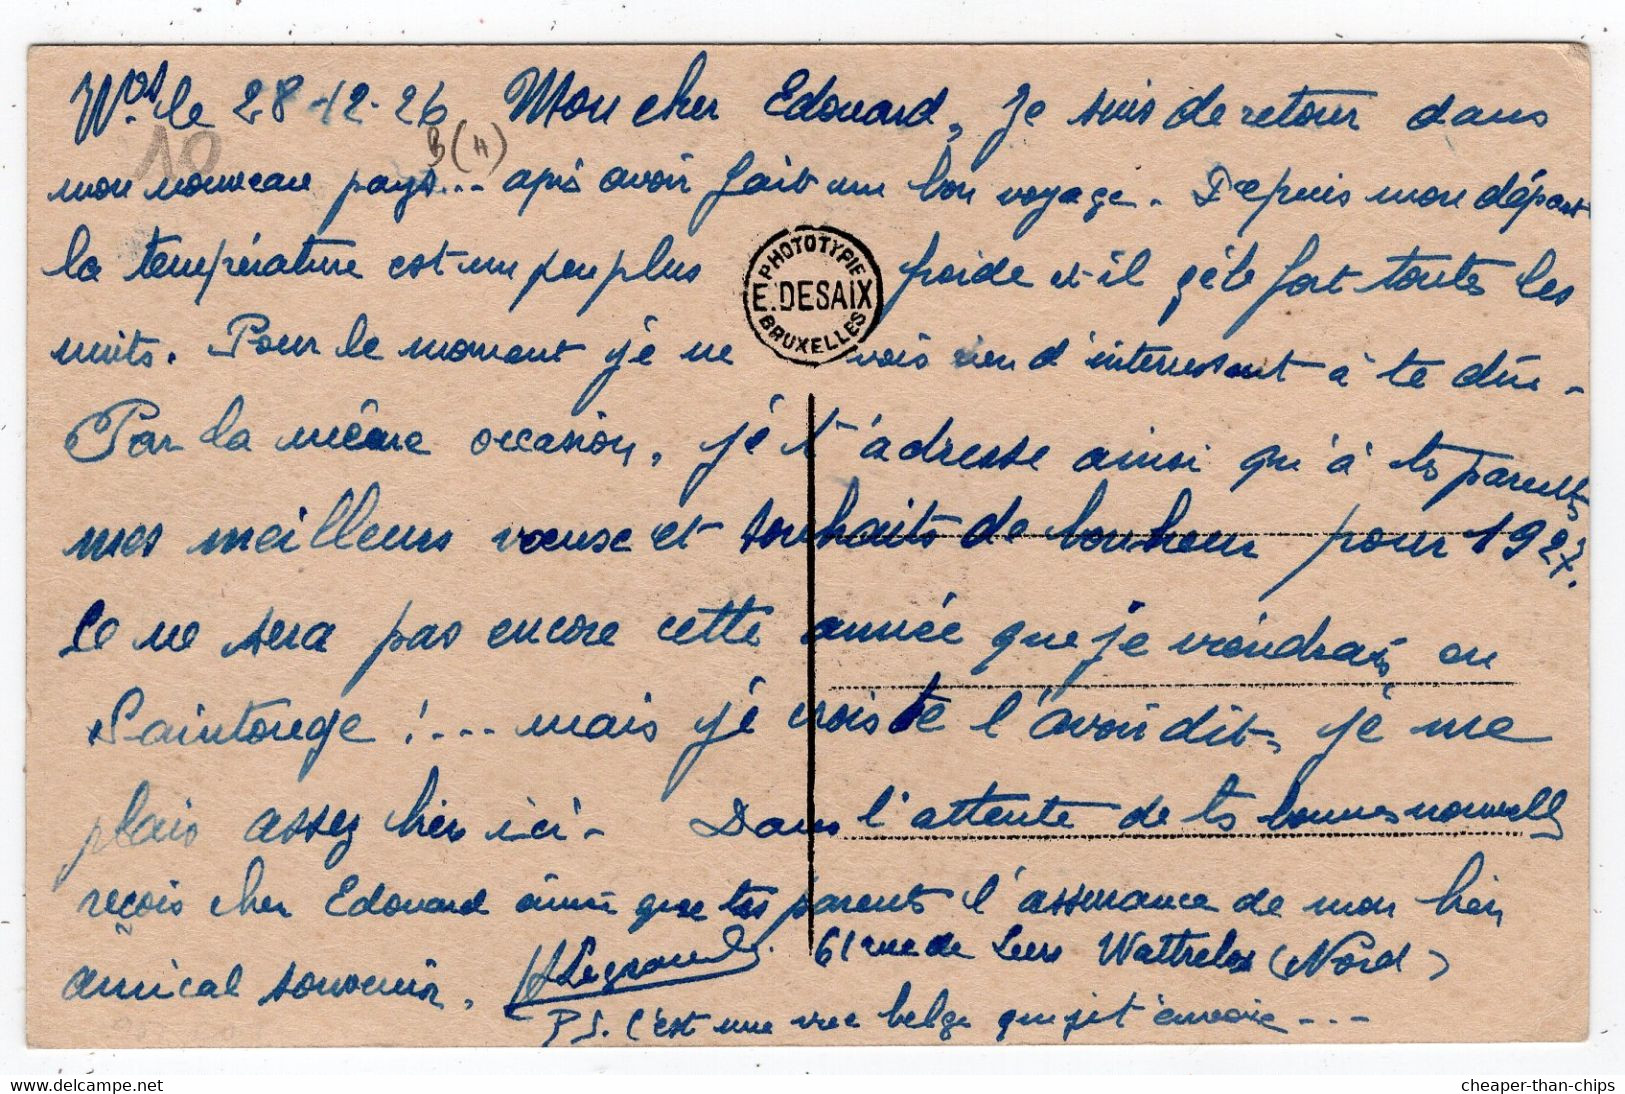 Wos le 28-12-26 Mon cher Edouard, je suis de retour dans
10
B(H)
mon nouveau pays... après avoir fait un bon voyage. Depuis mon départ
la température est un peu plus froide et il gèle fort toutes les
PHOTOTYPIE
E. DESAIX
BRUXELLES
nuits. Pour le moment je ne vois rien d'interressant à te dire -
Par la même occasion, je t'adresse ainsi qu'à tes parents
mes meilleurs voeux et souhaits de bonheur pour 1927.
Ce ne sera pas encore cette année que je viendrais en
Saintonge !.... mais je crois te l'avoir dit, je me
plais assez bien ici - Dans l'attente de tes bonnes nouvelles
reçois cher Edouard ainsi que tes parents l'assurance de mon bien
amical souvenir. Legrand. 61 rue de Leers Wattrelos (Nord)
P.S. C'est une vue belge que je t'envoie ----
cheaper-than-chips